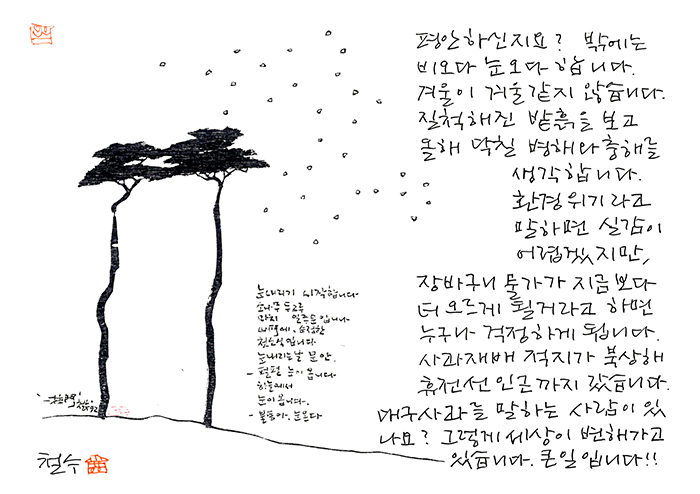 평안하신지요? 밖에는
비오다 눈오다 합니다.
겨울이 겨울같지 않습니다.
질척해진 밭흙을 보고
올해 닥칠 병해와 충해를
생각합니다.
환경위기라고
말하면 실감이
어렵겠지만,
장바구니 물가가 지금보다
더 오르게 될거라고 하면
누구나 걱정하게 됩니다.
사과재배 적지가 북상해
휴전선 인근까지 갔습니다.
대구사과를 말하는 사람이 있
나요? 그렇게 세상이 변해가고
있습니다. 큰일입니다!!
눈내리기 시작합니다
소나무 두그루
마치 일주문입니다
순정한
청소식입니다
눈내리는날 분안.
- 펄펄 눈이 옵니다
하늘에서
눈이 옵니다.
철수